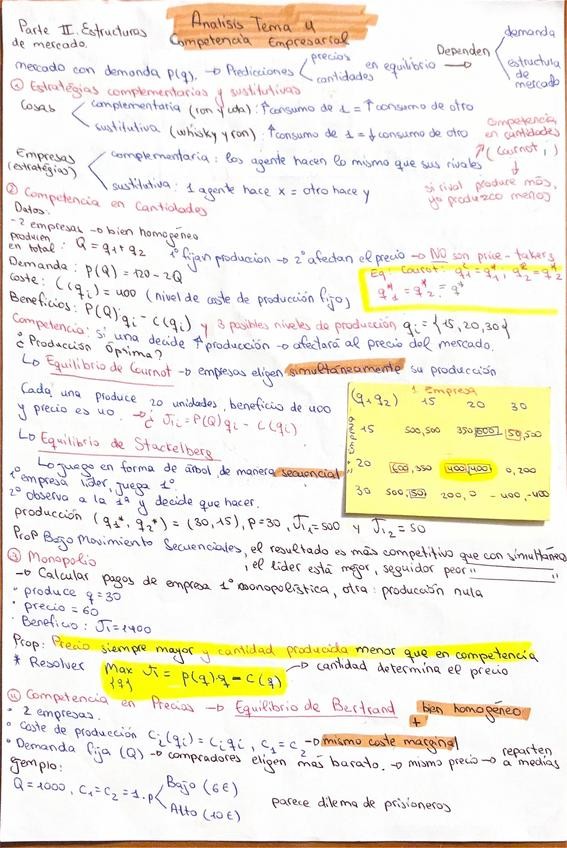 Parte II. Estructuras de mercado.
Analisis Tema 4
Competencia Empresarial
mercado con demanda p(q). → Predicciones < precios cantidades en equilibrio → Dependen < demanda estructura de mercado
① Estratégias complementarias y sustitutivas
Cosas < complementaria (ron y cola): ↑consumo de 1 = ↑ consumo de otro
sustitutiva (whisky y ron): ↑consumo de 1 = ↓ consumo de otro
Empresas (estratégias) < complementaria: los agente hacen lo mismo que sus rivales
sustitutiva: 1 agente hace x = otro hace y
competencia en cantidades
(Cournot)
si rival produce más, yo produzco menos
② Competencia en Cantidades
Datos:
- 2 empresas → bien homogéneo
producen en total: Q = q1 + q2
1º fijan producción → 2º afectan el precio → NO son price-takers
Demanda: P(Q) = 120 - 2Q
Eq. Cournot: q1* = q1*, q2* = q2*
q1* = q2* = q*
Coste: C(qi) = 400 (nivel de coste de producción fijo)
Beneficios: P(Q)·qi - C(qi) y 3 posibles niveles de producción qi = {15, 20, 30}
Competencia: si una decide ↑ producción → afectará al precio del mercado.
¿Producción óptima?
↳ Equilibrio de Cournot → empresas eligen simultáneamente su producción
Cada una produce 20 unidades, beneficio de 400
y precio es 40. → ¿ πi = P(Q)qi - C(qi)
(q1q2) 1 Empresa
15 20 30
15 500,500 350,600 50,500
20 600,350 400,400 0,200
30 500,50 200,0 -400,-400
↳ Equilibrio de Stackelberg
↳ juego en forma de árbol, de manera secuencial
1º empresa líder, juega 1º.
2º observa a la 1ª y decide que hacer.
producción (q1*, q2*) = (30,15), p=30, π1=500 y π2 = 50
Prop Bajo Movimiento Secuenciales, el resultado es más competitivo que con simultáneo
, el líder está mejor, seguidor peor " "
③ Monopolio
→ Calcular pagos de empresa 1º monopolística, otra: producción nula
• produce q=30
• precio = 60
• Beneficio: π=1400
Prop: Precio siempre mayor y cantidad producida menor que en competencia
* Resolver Max {q} π = p(q)·q - C(q) → cantidad determina el precio
④ Competencia en Precios → Equilibrio de Bertrand bien homogéneo
+
• 2 empresas.
• Coste de producción Ci(qi) = Ci qi, C1 = C2 → mismo coste marginal
• Demanda fija (Q) → compradores eligen mas barato. → mismo precio → reparten a medias
Ejemplo:
Q = 1000, C1 = C2 = 1. P < Bajo (6€)
Alto (10€)
parece dilema de prisioneros